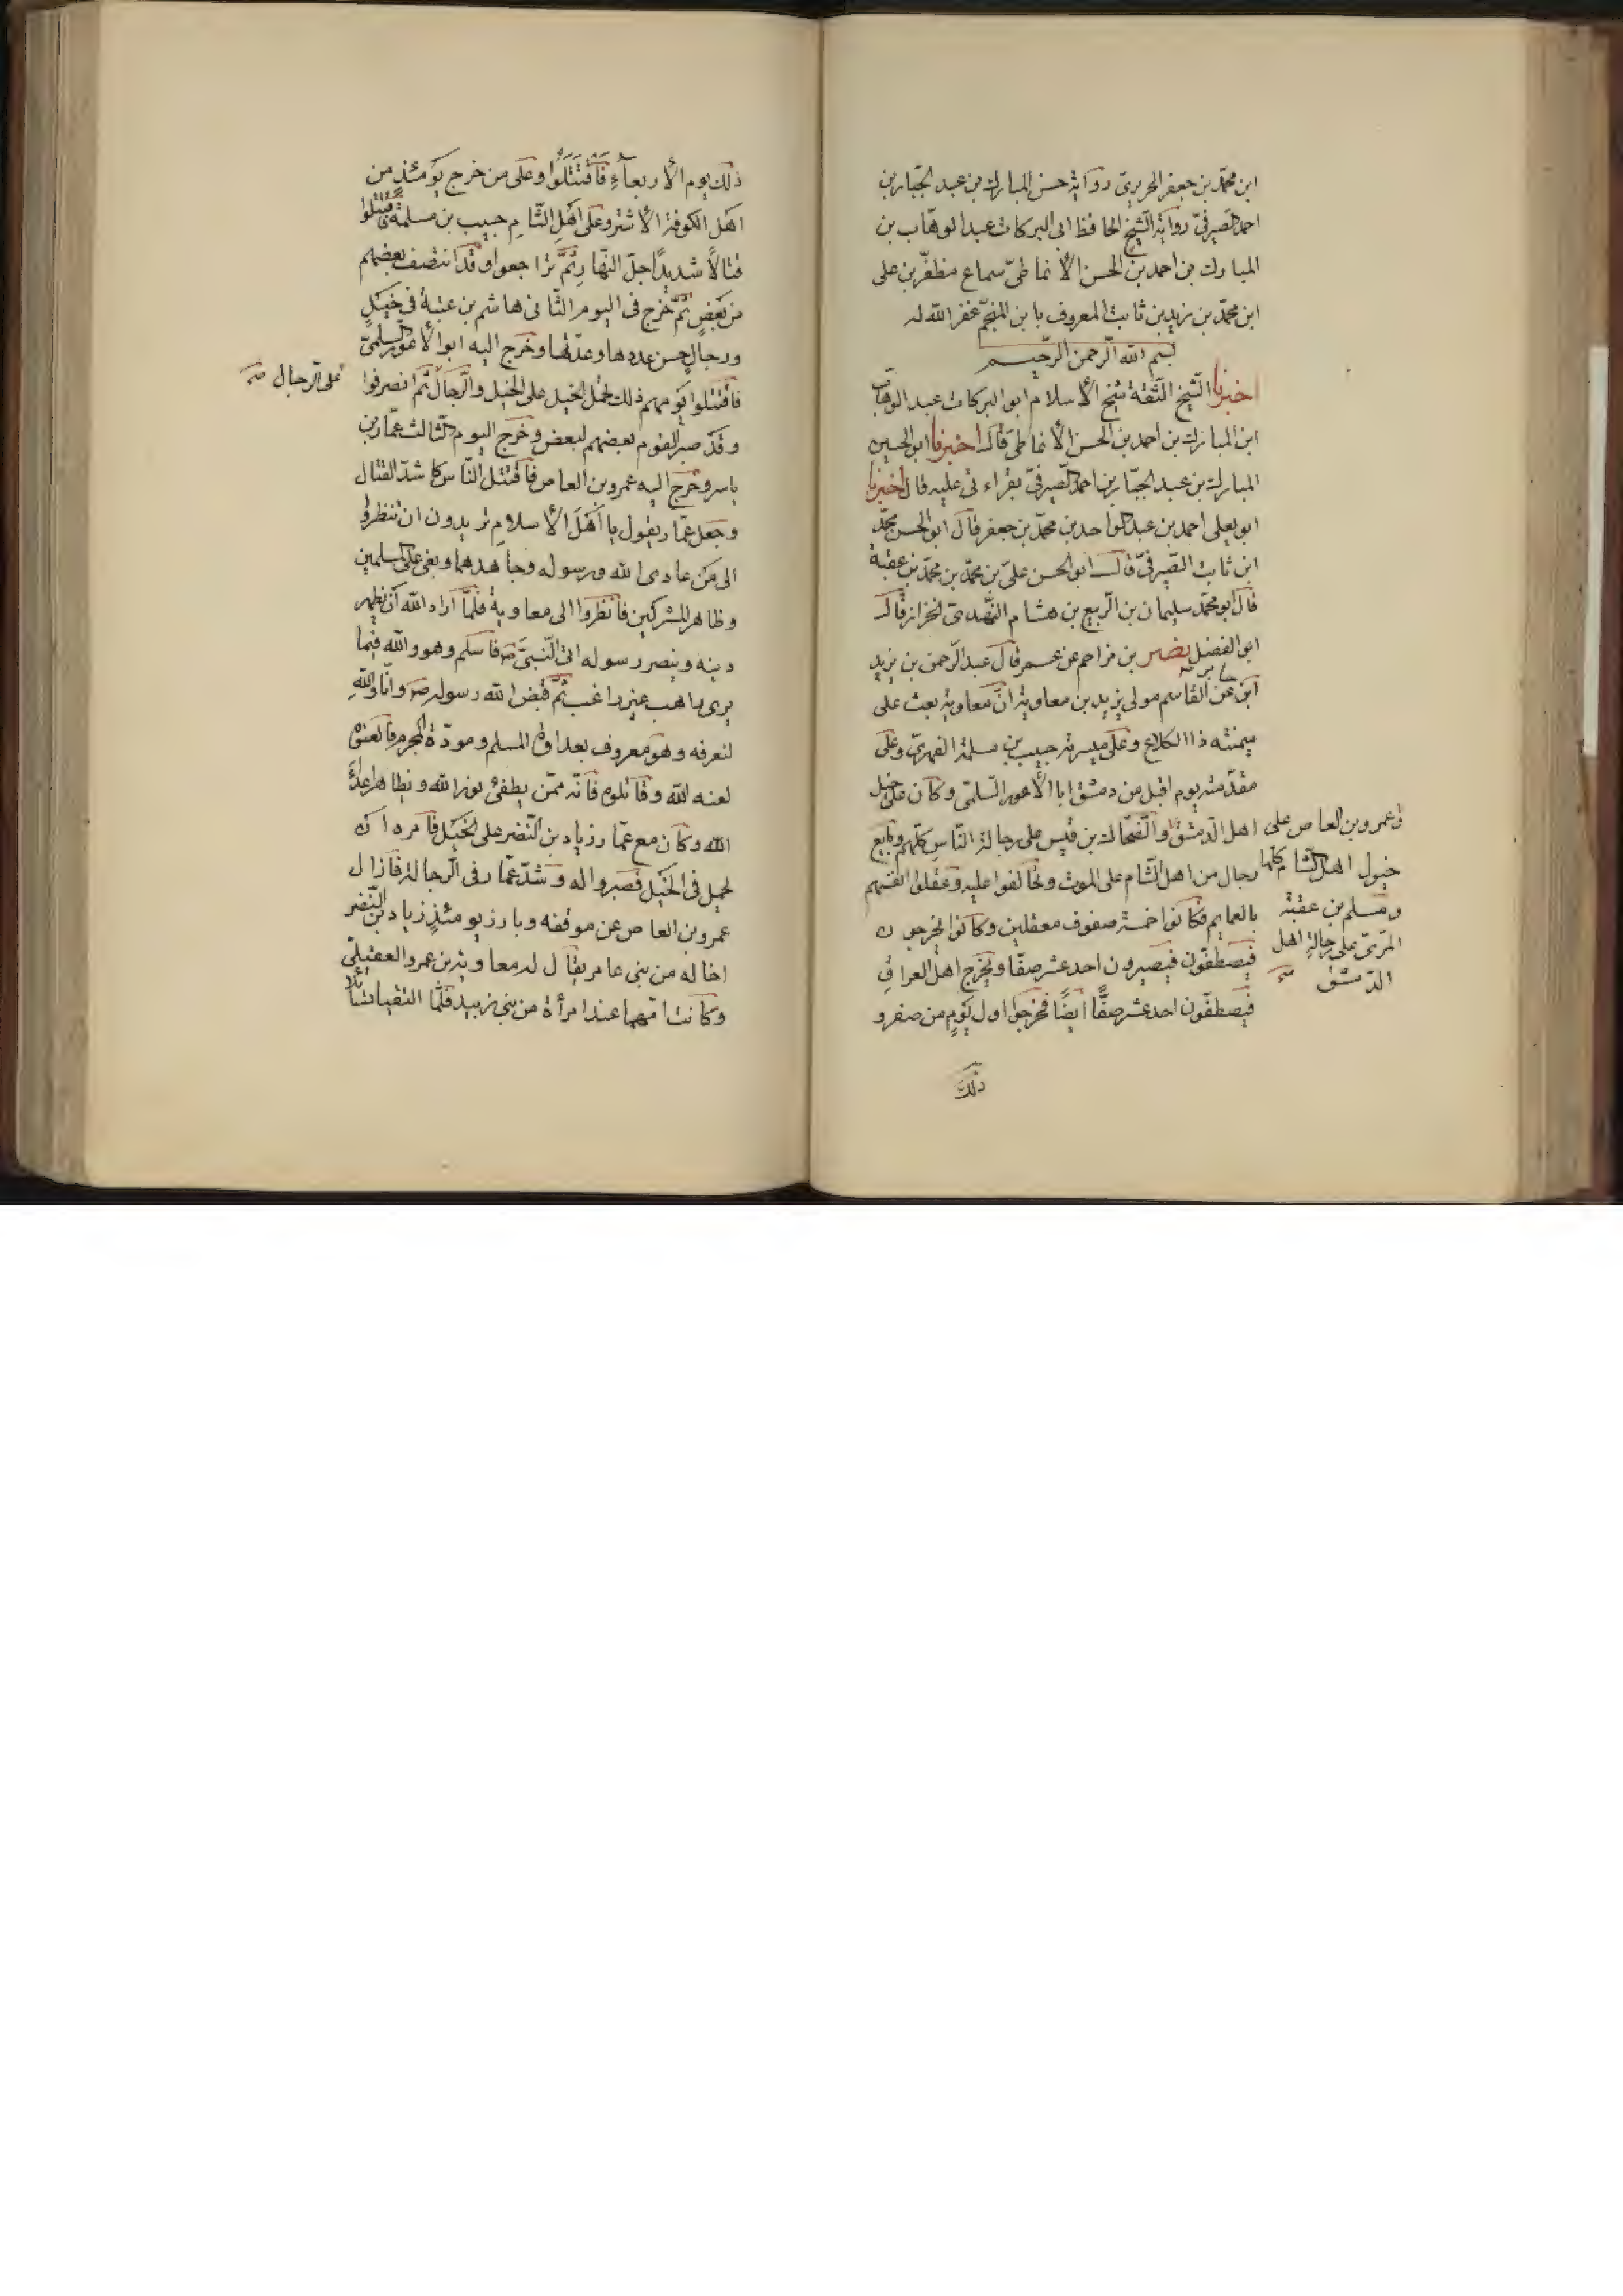 ابن محمّد بن جعفر الحريرىّ رواية حسن المبارك بن عبد الجبّار بن
احمد الصيرفىّ رواية الشيخ الحافظ ابى البركات عبد الوهّاب بن
المبارك بن احمد بن الحسن الأنماطىّ سماع مظفّر بن على
ابن محمّد بن زيد بن ثابت المعروف بابن المنجّم غفر الله له
بسم الله الرّحمن الرّحيم
اخبرنا الشّيخ الثّقة شيخ الأسلام ابو البركات عبد الوهّاب
ابن المبارك بن احمد بن الحسن الأنماطىّ قال اخبرنا ابو الحسين
المبارك بن عبد الجبّار بن احمد الصّيرفىّ بقراءتى عليه قال اخبرنا
ابو يعلى احمد بن عبد الواحد بن محمّد بن جعفر قال ابو الحسن محمّد
ابن ثابت الصّيرفىّ قال ابو الحسن علىّ بن محمّد بن محمّد بن عقبة
قال ابو محمّد سليمان بن الرّبيع بن هشام النّهدىّ الخزاز قال
ابو الفضل نصر بن مزاحم عن عمر قال عبد الرّحمن بن يزيد
ابن جابر عن القاسم مولى يزيد بن معاوية انّ معاوية بعث على
ميمنته ذا الكلاع وعلى ميسرته حبيب بن مسلمة الفهرىّ وعلى
مقدّمته يوم اقبل من دمشق ابا الأعور السّلمىّ وكان على خيل
اهل الدّمشق والضّحّاك بن قيس على رجالة النّاس كلّهم وبايع
رجال من اهل الشّام على الموت وتحالفوا عليه وعقلوا انفسهم
بالعمايم فكانوا خمسة صفوف معقلين وكانوا يخرجون
فيصطفّون فيصيرون احد عشر صفّا ويخرج اهل العراق
فيصطفّون احد عشر صفًّا ايضًا فخرجوا اول يومٍ من صفر و
ذلك
وعمرو بن العاص على
خيول اهل الشام كلها
ومسلم بن عقبة
المرّىّ على رجالة اهل
الدّمشق صح
ذلك يوم الأربعآءِ فَاقْتَتَلُوا وعلى من خرج يومئذٍ من
اهل الكوفة الأشتر وعلى اهل الشّام حبيب بن مسلمة فاقتتلوا
قتالاً شديدًا جلّ النّهار ثمّ تراجعوا وقد انتصف بعضهم
من بعضٍ ثمّ خرج فى اليوم الثّانى هاشم بن عتبة فى خيلٍ
ورجالٍ حسن عددها وعدّتها وخرج اليه ابو الأعور السلمىّ
فاقتتلوا يومهم ذلك تحمل الخيل على الخيل والرّجال ثمّ انصرفوا
على الرجال صح
وقد صبر القوم بعضهم لبعض وخرج اليوم الثّالث عمّار بن
ياسر وخرج اليه عمرو بن العاص فاقتتل النّاس كاشدّ القتال
وجعل عمّار يقول يا اهل الأسلام تريدون ان تنظروا
الى من عادى الله ورسوله وجاهدهما وبغى على المسلمين
وظاهر المشركين فانظروا الى معاوية فلمّا اراد الله ان يظهر
دينه وينصر رسوله اتى النّبىّ ص فاسلم وهو والله فيما
يرى راهب غير راغب ثمّ قبض الله رسوله ص وانّا والله
لنعرفه وهو معروف بعداوة المسلم ومودّة المجرم فالعنوه
لعنه الله وقاتلوه فانّه ممّن يطفئ نور الله ويظاهر اعداء
الله وكان مع عمّار زياد بن النّضر على الخيل فامره ان
يحمل فى الخيل فصبروا له وشدّ عمّار فى الرّجالة فازال
عمرو بن العاص عن موقفه وبارز يومئذٍ زياد بن النّضر
اخا له من بنى عامر يقال له معاوية بن عمرو العقيلىّ
وكانت امّهما هندا مرأة من بنى زبيد فلمّا التقيا